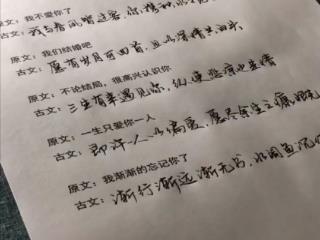 原文：我不爱你了
古文：我与春风皆过客，你
原文：我们结婚吧
古文：愿有岁月可回首，且以深情共白头
原文：不论结局，很高兴认识你
古文：三生有幸遇见你，纵使悲凉也是情
原文：一生只爱你一人
古文：即许一人以偏爱，愿尽余生之慷慨
原文：我渐渐的忘记你了
古文：渐行渐远渐无书，水阔鱼沉